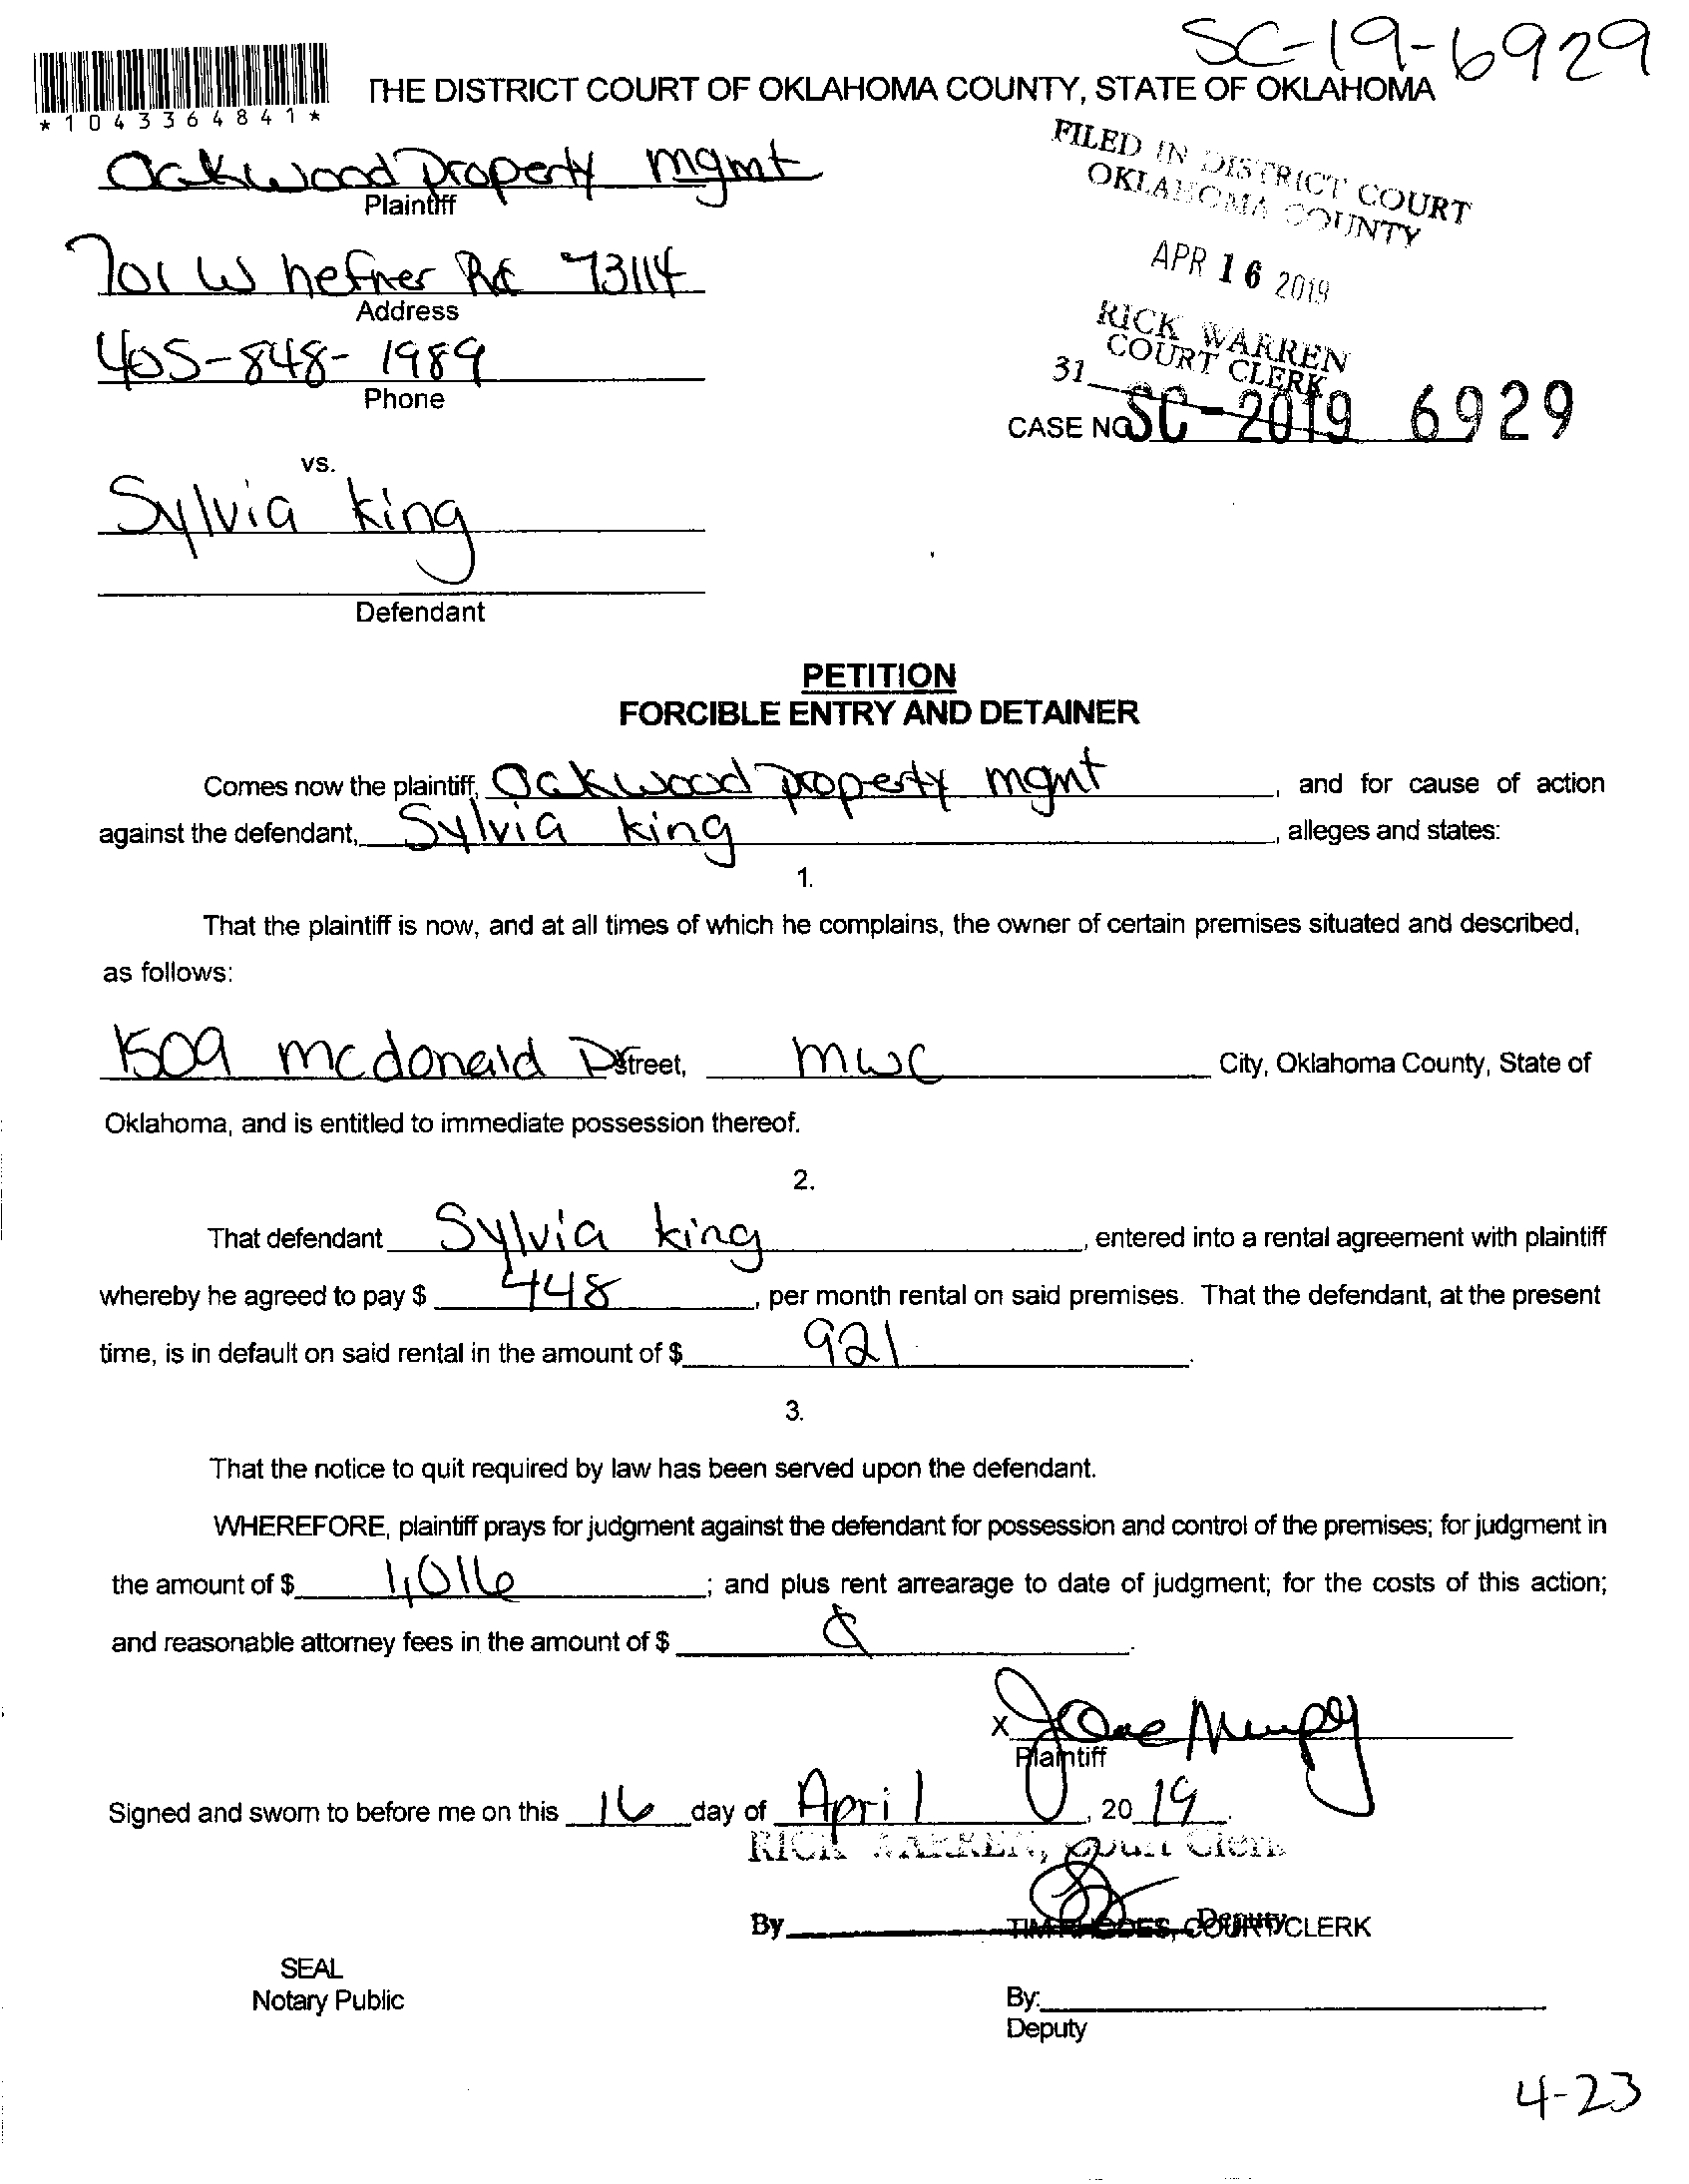 SC-19-6929
*1043364841*
THE DISTRICT COURT OF OKLAHOMA COUNTY, STATE OF OKLAHOMA
Oakwood Property mgmt
Plaintiff
FILED IN DISTRICT COURT
OKLAHOMA COUNTY
701 W hefner Rd 73114
Address
APR 16 2019
405-848-1989
Phone
RICK WARREN
COURT CLERK
31
CASE NO SC-2019 6929
vs.
Sylvia king
Defendant
PETITION
FORCIBLE ENTRY AND DETAINER
Comes now the plaintiff, Oakwood Property mgmt, and for cause of action
against the defendant, Sylvia king, alleges and states:
1.
That the plaintiff is now, and at all times of which he complains, the owner of certain premises situated and described,
as follows:
1509 mcdonald Dr Street, mwc City, Oklahoma County, State of
Oklahoma, and is entitled to immediate possession thereof.
2.
That defendant Sylvia king, entered into a rental agreement with plaintiff
whereby he agreed to pay $ 448, per month rental on said premises. That the defendant, at the present
time, is in default on said rental in the amount of $ 921.
3.
That the notice to quit required by law has been served upon the defendant.
WHEREFORE, plaintiff prays for judgment against the defendant for possession and control of the premises; for judgment in
the amount of $ 1,016; and plus rent arrearage to date of judgment; for the costs of this action;
and reasonable attorney fees in the amount of $
X
Plaintiff
Signed and sworn to before me on this 16 day of April, 2019.
RICK WARREN, Court Clerk
By Deputy
TIM RHODES, COURT CLERK
SEAL
Notary Public
By:
Deputy
4-23